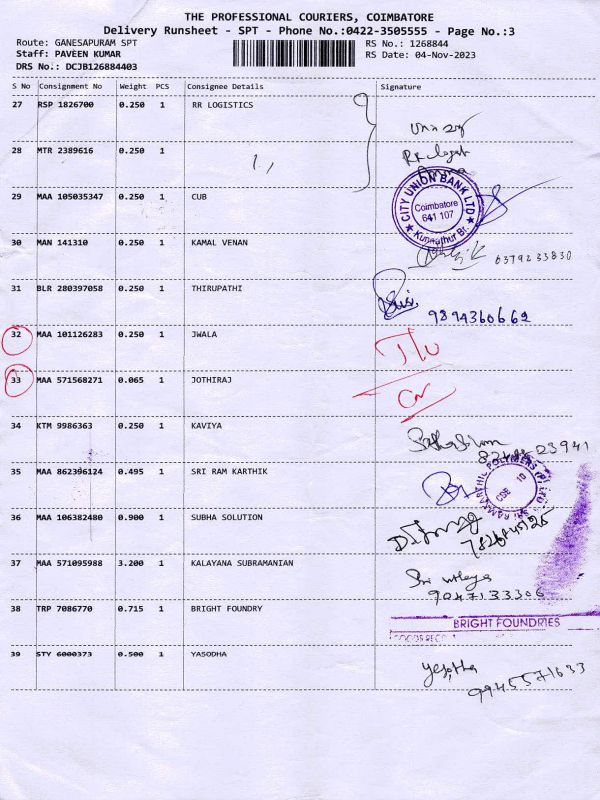 THE PROFESSIONAL COURIERS, COIMBATORE
Delivery Runsheet - SPT - Phone No.:0422-3505555 - Page No.:3
Route: GANESAPURAM SPT
RS No.: 1268844
Staff: PAVEEN KUMAR
RS Date: 04-Nov-2023
DRS No.: DCJB126884403
S No Consignment No Weight PCS Consignee Details Signature
27 RSP 1826700 0.250 1 RR LOGISTICS
28 MTR 2389616 0.250 1
29 MAA 105035347 0.250 1 CUB
CITY UNION BANK LTD
Coimbatore
641 107
Kunnathur Br.
30 MAN 141310 0.250 1 KAMAL VENAN 6379233830
31 BLR 280397058 0.250 1 THIRUPATHI
9894360662
32 MAA 101126283 0.250 1 JWALA
33 MAA 571568271 0.065 1 JOTHIRAJ
34 KTM 9986363 0.250 1 KAVIYA
23941
35 MAA 862396124 0.495 1 SRI RAM KARTHIK
36 MAA 106382480 0.900 1 SUBHA SOLUTION
37 MAA 571095988 3.200 1 KALAYANA SUBRAMANIAN
9047133306
38 TRP 7086770 0.715 1 BRIGHT FOUNDRY
BRIGHT FOUNDRIES
39 STY 6000373 0.500 1 YASODHA
9945571633